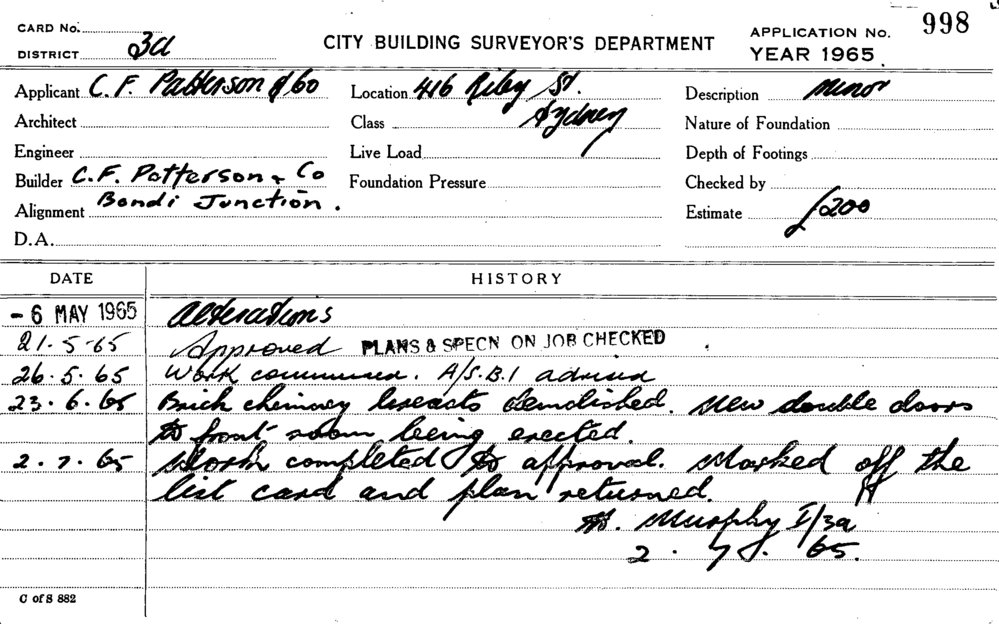 CARD No.
DISTRICT 3a
CITY BUILDING SURVEYOR'S DEPARTMENT
APPLICATION No. 998
YEAR 1965
Applicant C. F. Patterson & Co
Location 416 Riley St.
Sydney
Description Minor
Architect
Class
Nature of Foundation
Engineer
Live Load
Depth of Footings
Builder C.F. Patterson & Co
Bondi Junction.
Foundation Pressure
Checked by
Alignment
Estimate £200
D.A.
DATE HISTORY
- 6 MAY 1965 Alterations
21.5.65 Approved PLANS & SPECN ON JOB CHECKED
26.5.65 Work commenced. A/S.B.I advised
23.6.65 Brick chimney demolished. New double doors
to front room being erected.
2.7.65 Work completed to approval. Marked off the
list card and plan returned.
Murphy I/3a
2.7.65.
C of S 882